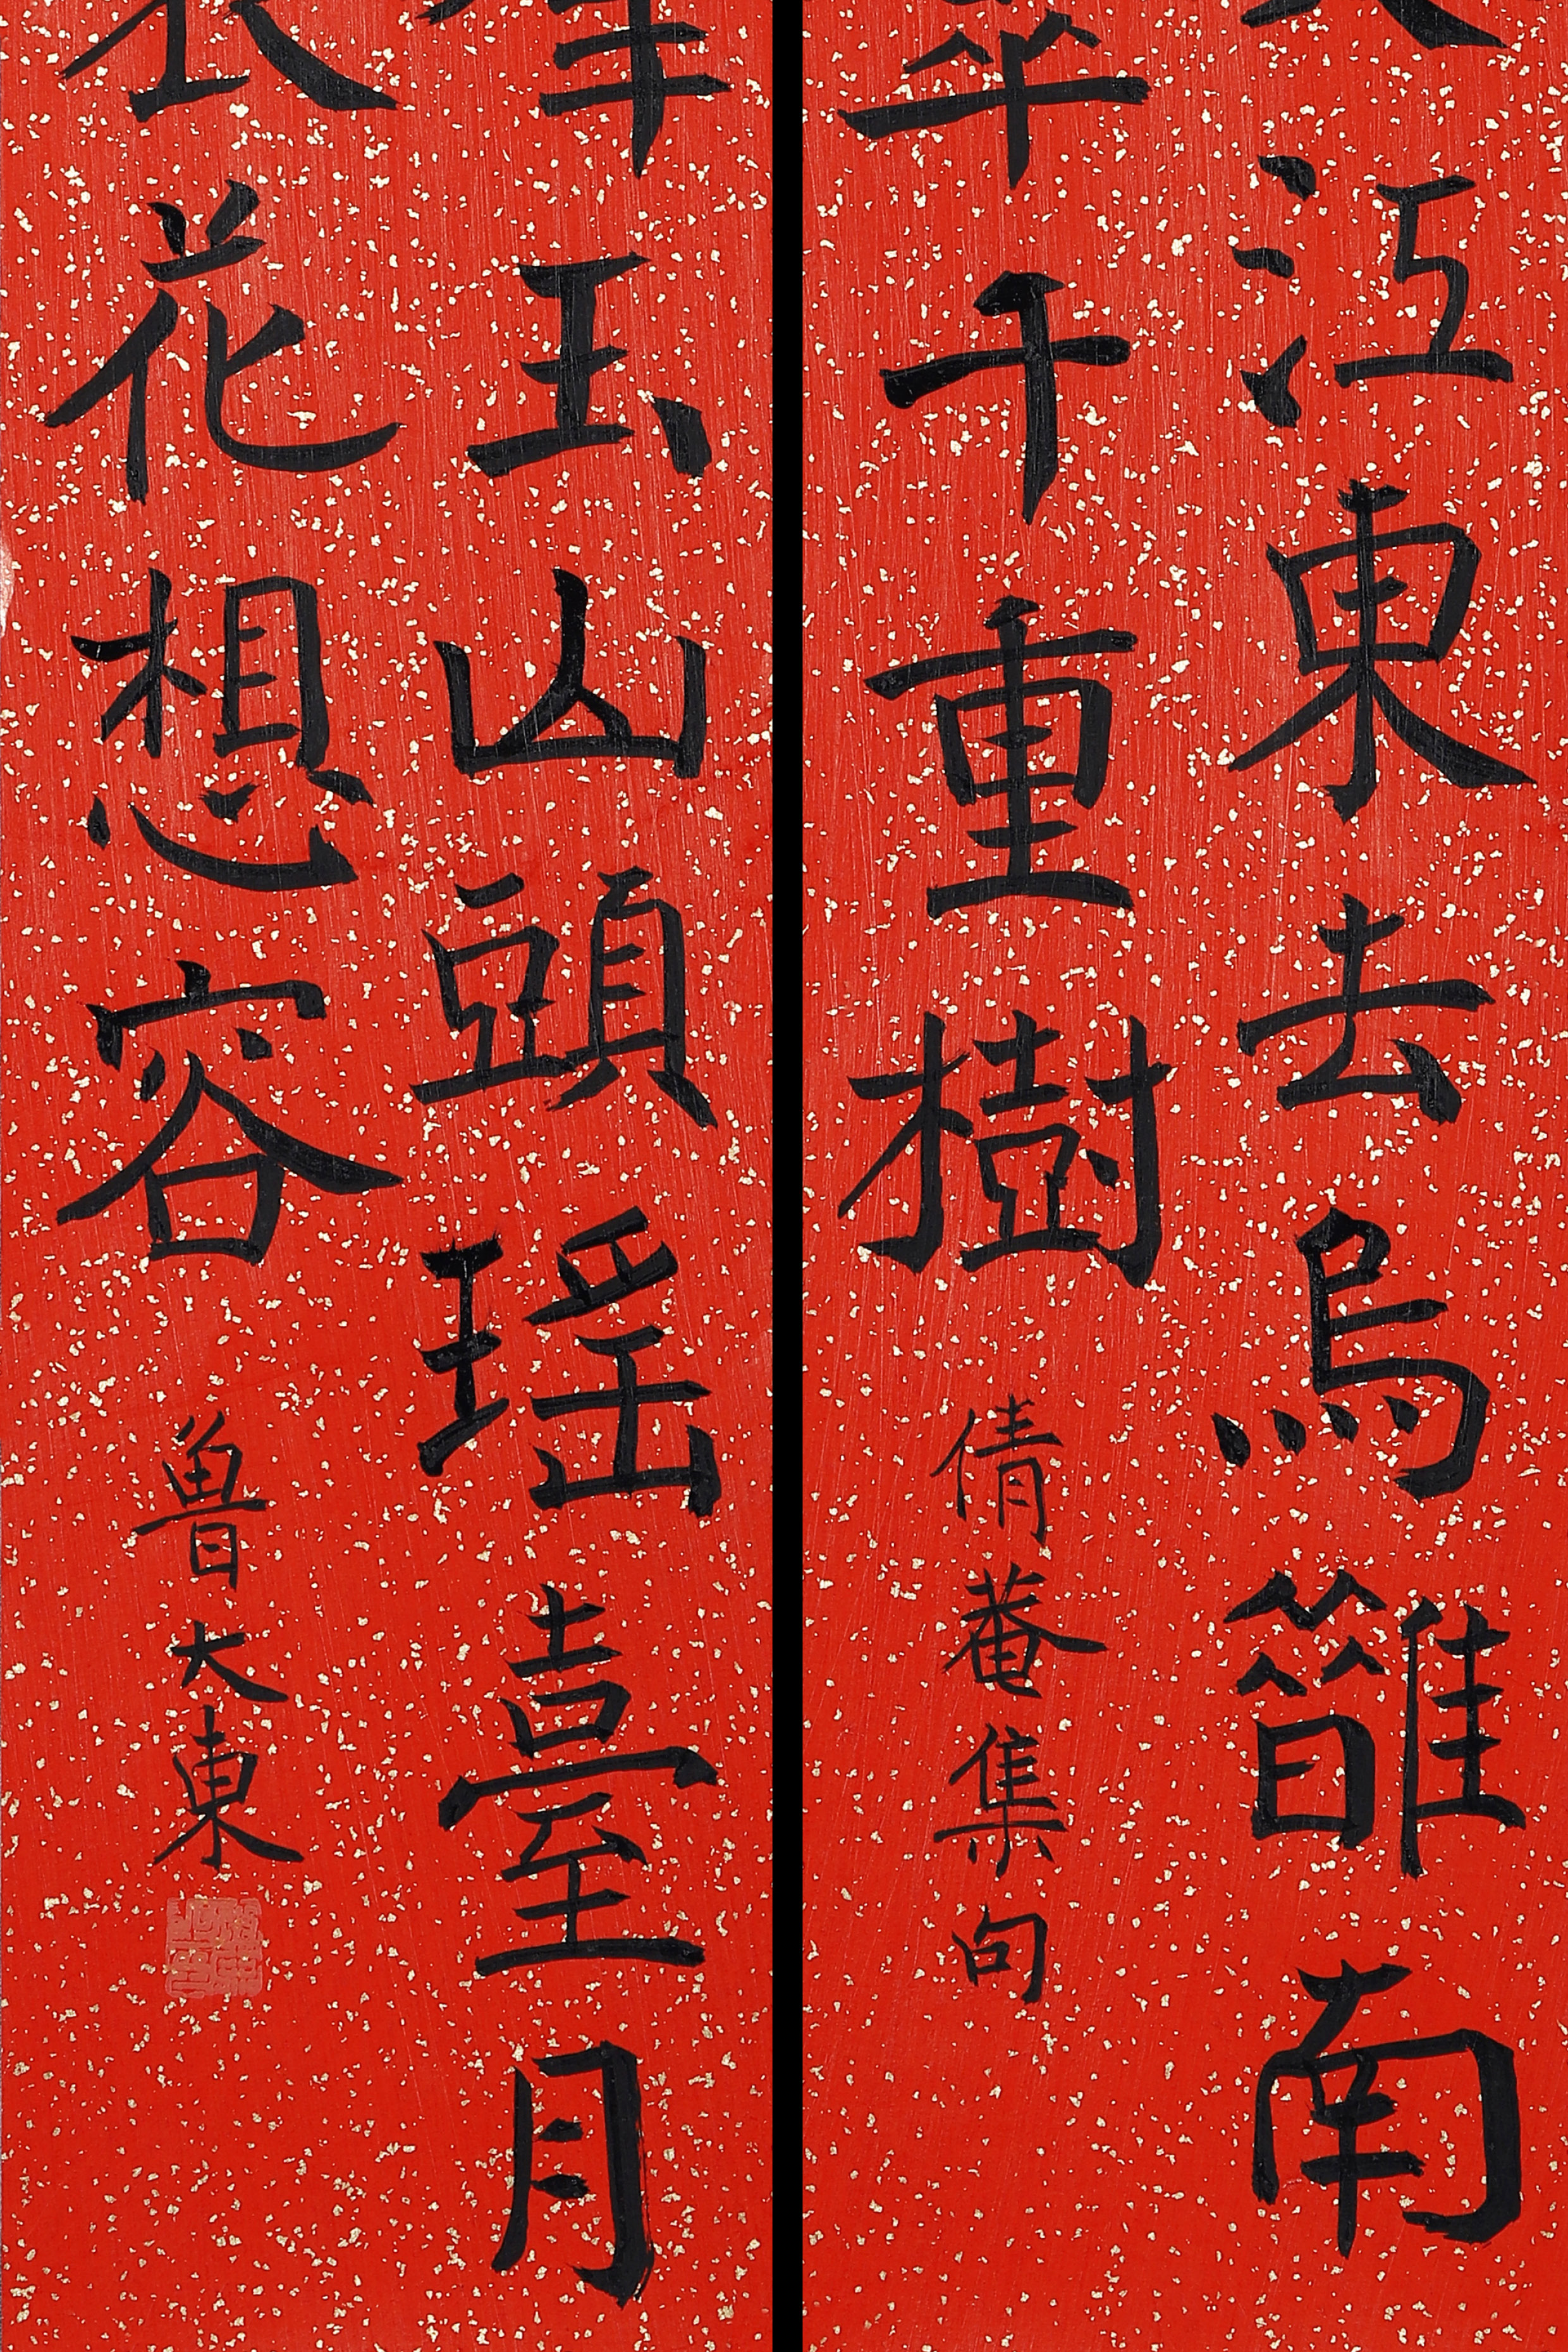 江東去烏䧿南
千重樹
倩菴集句
玉山頭瑶臺月
花想容
魯大東